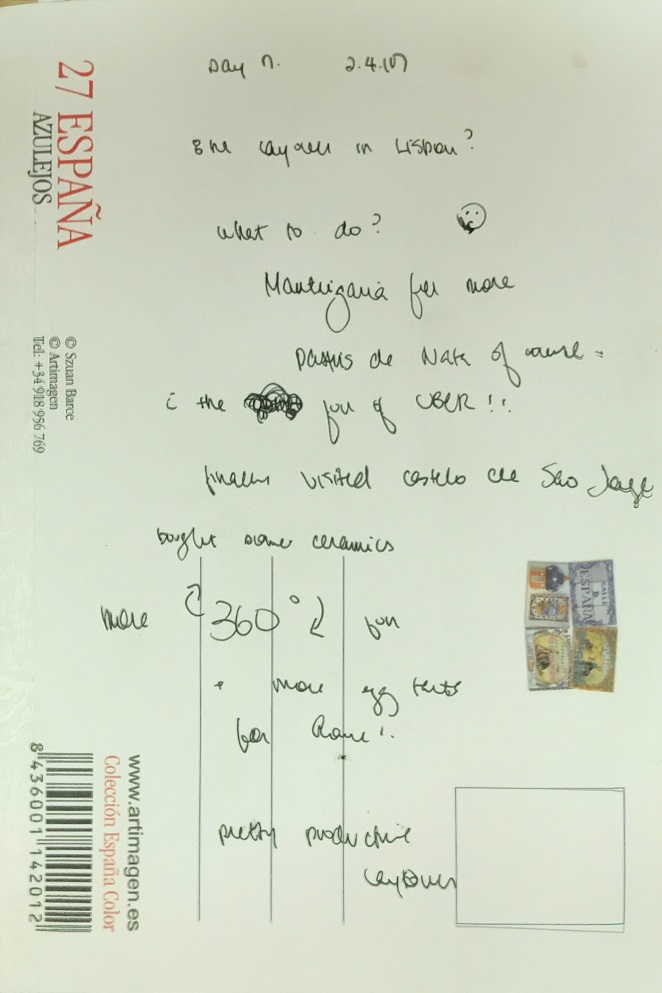 Day 7. 2.4.17
8 hr layover in Lisbon?
what to do?
Manteigaria for more
pastéis de Nata of course -
the fun of UBER!!
finally visited castelo de Sao Jorge
bought some ceramics
more 360° fun
+ more egg tarts
for Rome!!
pretty productive
layover
27 ESPAÑA
AZULEJOS
© Szuan Barce
© Artimagen
Tel: +34 918 956 769
www.artimagen.es
Colección España Color
8 436001 142012